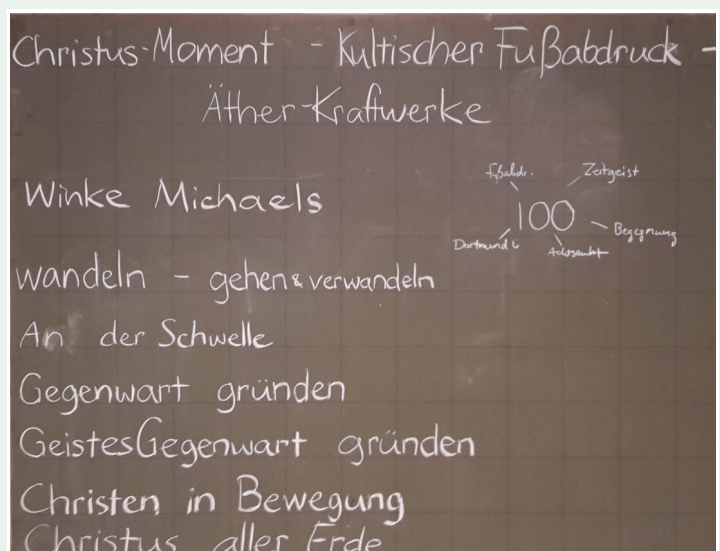 Christus-Moment - Kultischer Fußabdruck -
Äther-Kraftwerke
Winke Michaels
Fußabdr. Zeitgeist
100
Dortmund Begegnung
wandeln - gehen & verwandeln
An der Schwelle
Gegenwart gründen
GeistesGegenwart gründen
Christen in Bewegung
Christus aller Erde